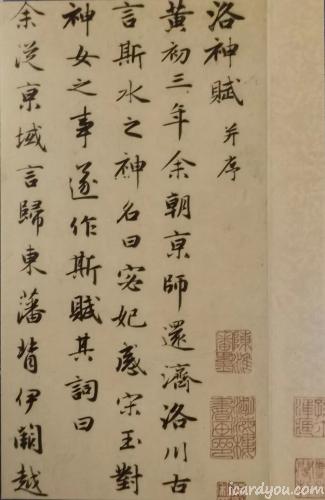 洛神賦 并序
黃初三年余朝京師還濟洛川古
言斯水之神名曰宓妃感宋玉對
神女之事遂作斯賦其詞曰
余從京域言歸東藩背伊闕越
icardyou.com